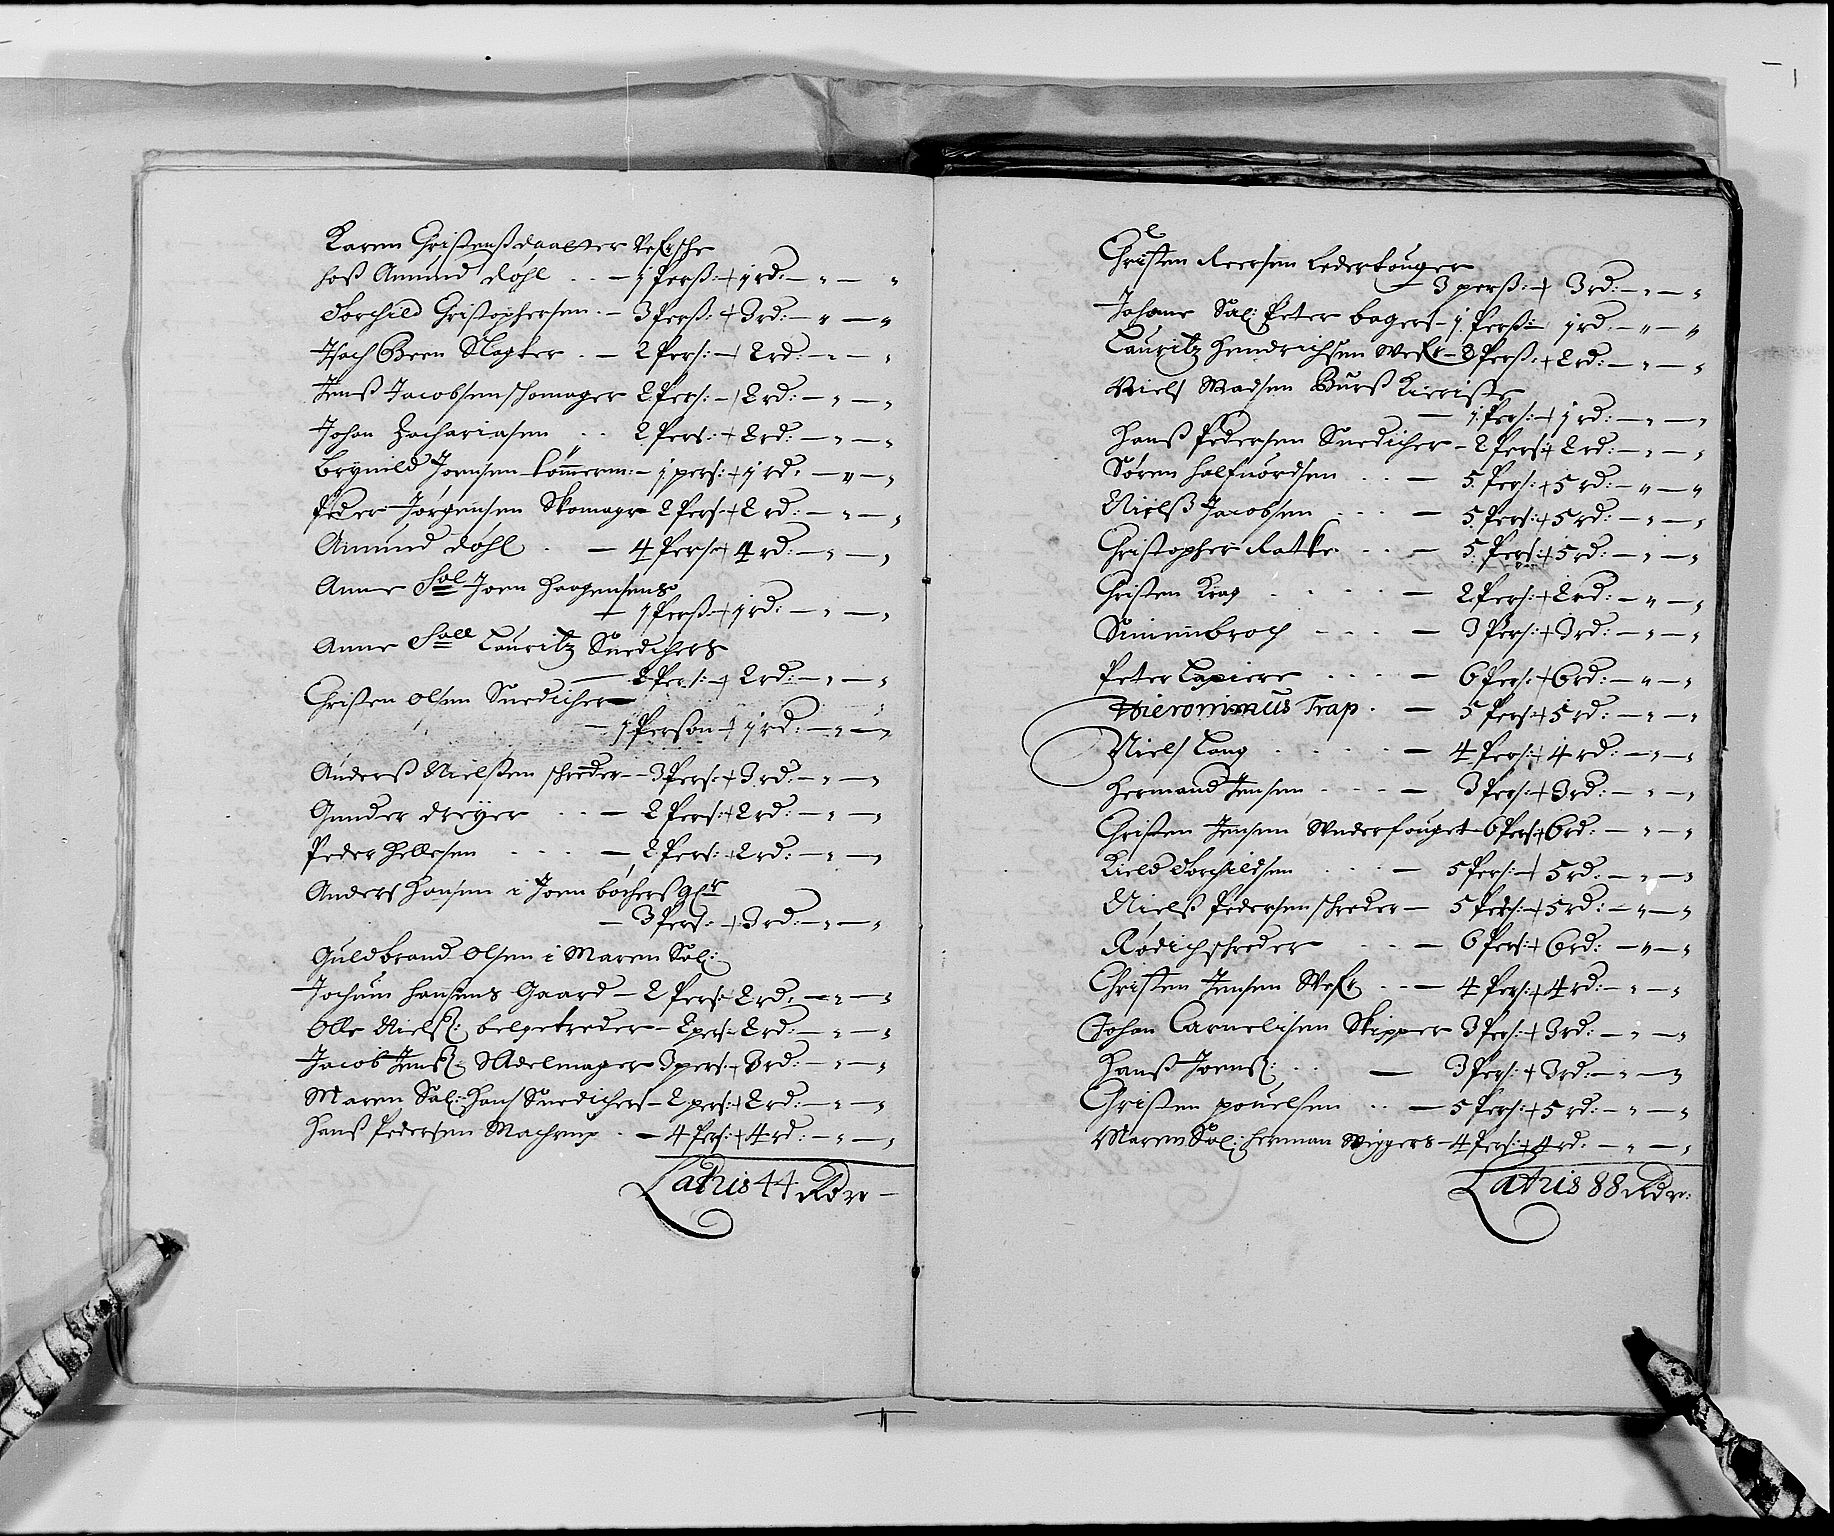 Karen Christensdaatter Vefische
hoß Amund døhl . . — 1 Perß: + 1 rd: — " — "
Torchild Christophersen — 3 Perß: + 3 rd: — " — "
Isach Been Slagter . — 2 Pers: — 2 rd: — " — "
Jenß Jacobsen schomager 2 Pers: — 2 rd: — " — "
Johan Zachariasen . . 2 Pers: + 2 rd: — " — "
Brynild Joensen tømmerm: — 1 pers: + 1 rd: — " — "
Peder Jørgensen Skomager 2 Pers + 2 rd: — " — "
Amund døhl . — 4 Pers + 4 rd: — " — "
Anne Sal Joen Haagensens
+ 1 Perß: + 1 rd: — " — "
Anne Sall Lauritz Snedichers
— 2 Pers: + 2 rd: — " — "
Christen Olsen Snedicher
— 1 Person + 1 rd: — " — "
Anderß Nielsen schreder — 3 Pers: + 3 rd: — " — "
Gunder dreyer . . — 2 Pers: + 2 rd: — " — "
Peder Hellesen . . . — 2 Pers: + 2 rd: — " — "
Anders Hansen i Joen bøcherß
— 3 Pers: + 3 rd: — " — "
Guldbrand Olsen i Maren Sal:
Jochum Hansens Gaard — 2 Pers 2 rd: — " — "
Olle Nielß: belgetreder — 2 pers — 2 rd: — " — "
Jacob Jenß: Sadelmager 3 pers: + 3 rd: — " — "
Maren Sal: Hans Snedichers — 2 pers: + 2 rd: — " — "
Hanß Pedersen Machrup . — 4 Pers: + 4 rd: — " — "
Latris 44 Rdr —
Christen Leersen Ledertouger
— 3 perß: + 3 rd: — " — "
Johane Sal: Peter bagers — 1 Perß: 1 rd: — " — "
Lauritz Hendrichsen Wefr — 2 Perß: + 2 rd: — " — "
Niels Madsen Burß
— 1 Pers: + 1 rd: — " — "
Hanß Pedersen Snedicher — 2 Pers + 2 rd: — " — "
Søren Halfuordsen . . — 5 Pers: + 5 rd: — " — "
Nielß Jacobsen . . . — 5 Pers: + 5 rd: — " — "
Christopher Ratke . . . — 5 Pers: + 5 rd: — " — "
Christen Krag . . . . — 2 Pers: + 2 rd: — " — "
Simmbroch . . . — 3 Pers: + 3 rd: — " — "
Peter Lapiere . . . . — 6 Pers: + 6 rd: — " — "
Hieronimus Trap . — 5 Pers + 5 rd: — " — "
Niels Lang . . . . — 4 Pers: + 4 rd: — " — "
Hermand Jensen . . . — 3 Pers: + 3 rd: — " — "
Christen Jensen Underfouget — 6 Pers + 6 rd: — " — "
Kield Torchildsen . . . — 5 Pers: + 5 rd: — " — "
Nielß Pedersen schreder — 5 Pers: + 5 rd: — " — "
Rødich schreder . . — 6 Pers: + 6 rd: — " — "
Christen Jensen Wefr . . — 4 Pers: + 4 rd: — " — "
Johan Carnelisen Skipper 3 Pers: + 3 rd: — " — "
Hanß Joenß: . . — 3 Pers: + 3 rd: — " — "
Christen pouelsen . . — 5 Pers: + 5 rd: — " — "
Maren Sal: Herman Wiggers — 4 Pers: + 4 rd: — " — "
Latris 88 Rdr: